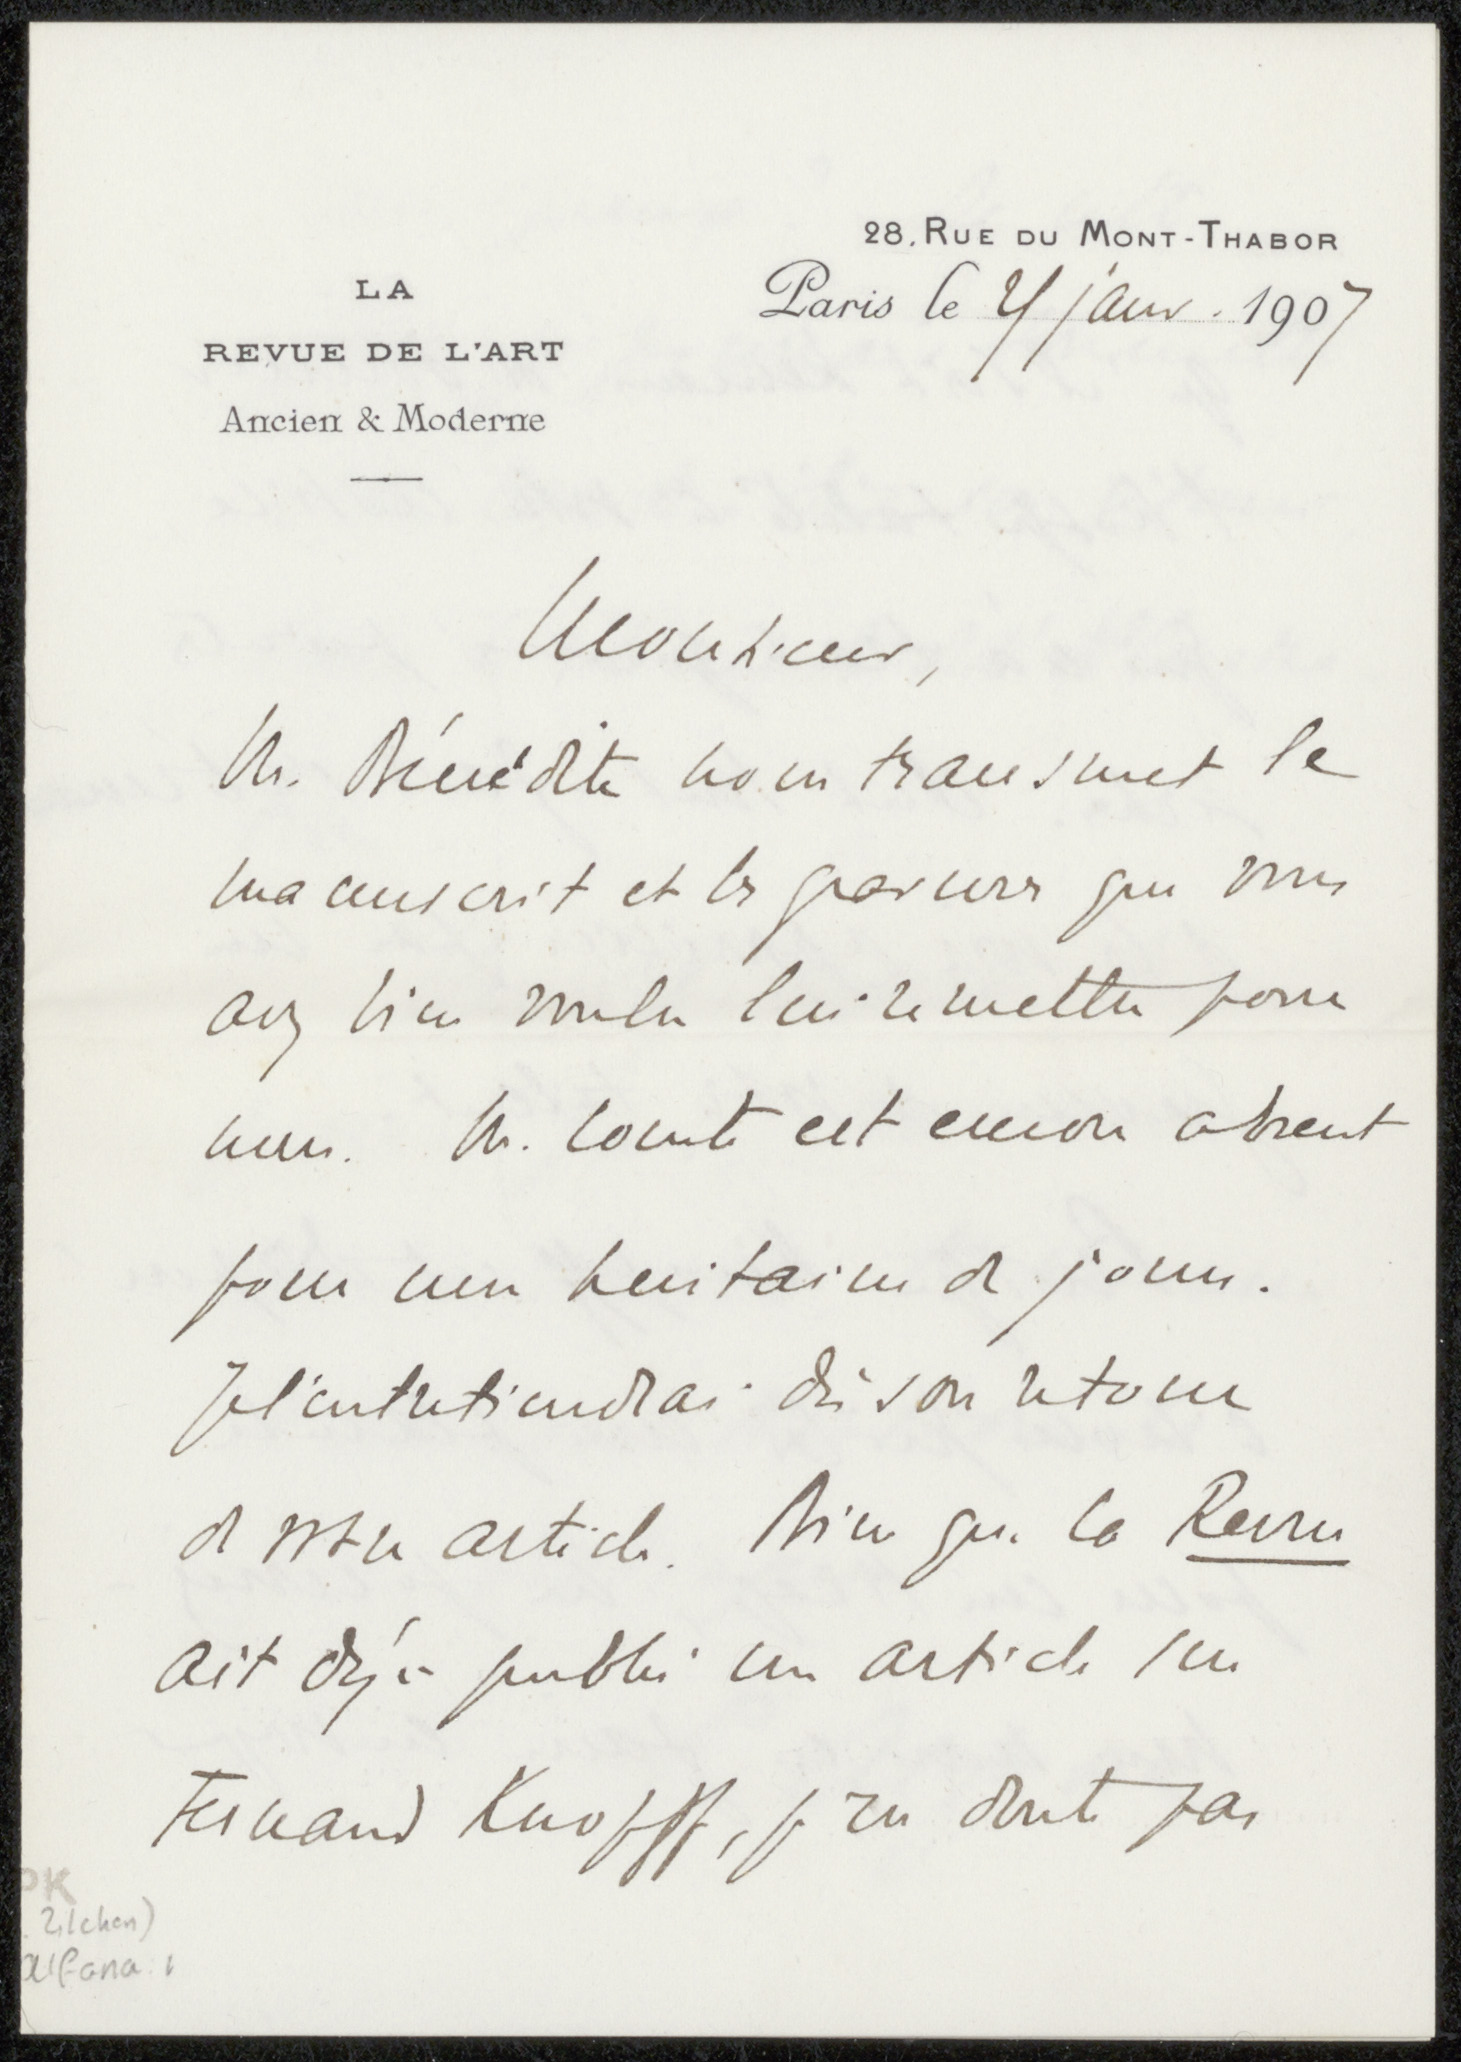 28, RUE DU MONT-THABOR
LA
REVUE DE L'ART
Ancien & Moderne
Paris le 4 janv. 1907
Monsieur,
M. Bénédite nous transmet le
manuscrit et les gravures que vous
avez bien voulu lui remettre pour
nous. M. Comte est encore absent
pour une huitaine de jours.
Je l'entretiendrai dès son retour
de votre article. Bien que la Revue
ait déjà publié un article sur
Fernand Knopff, je ne doute pas
PK
Zilcken)